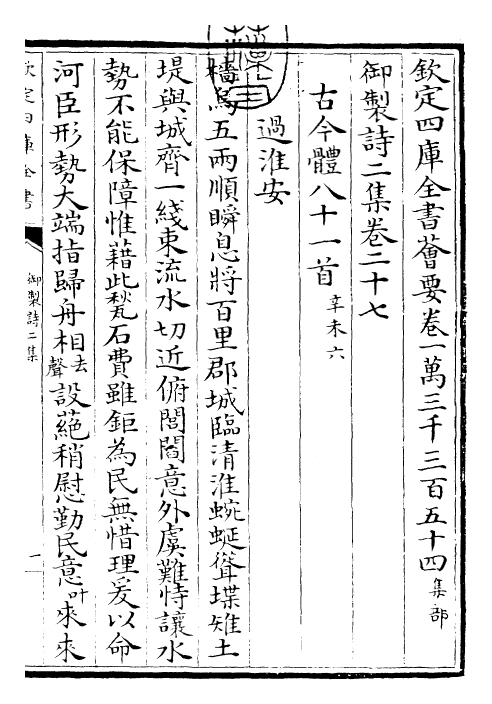 欽定四庫全書薈要卷一萬三千三百五十四集部
御製詩二集卷二十七
古今體八十一首辛未六
過淮安
檣烏五兩順瞬息將百里郡城臨清淮蜿蜒聳堞雉土
堤與城齊一綫束流水切近俯閭閻意外虞難恃讓水
勢不能保障惟藉此甃石費雖鉅為民無惜理爰以命
河臣形勢大端指歸舟相去聲設蕝稍慰勤民意叶來來
欽定四庫全書
御製詩二集
一